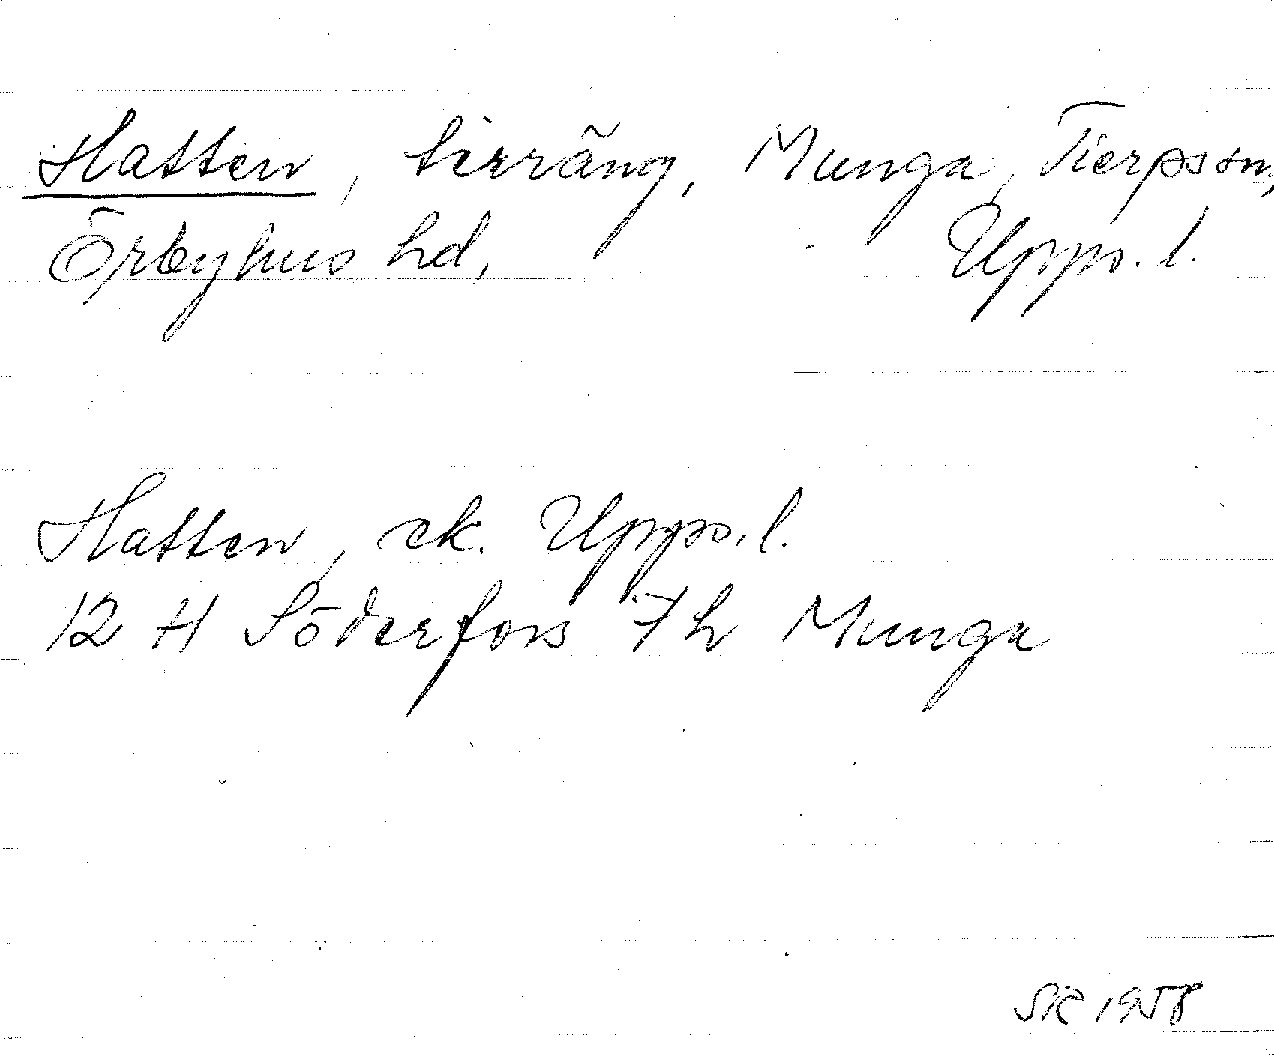 Hatten, terräng, Munga, Tierps sn,
Örbyhus hd, Upps. l.
Hatten, ek. Upps. l.
12 H Söderfors 7h Munga
SR 1958